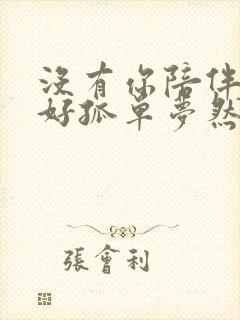 沒有你陪伴
好孤單夢然
張會利